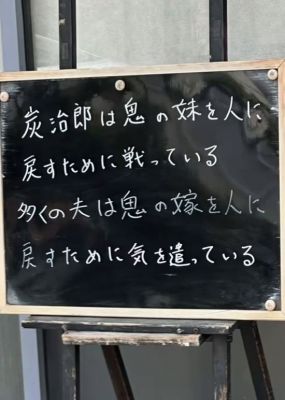 炭治郎は鬼の妹を人に
戻すために戦っている
多くの夫は鬼の嫁を人に
戻すために気を遣っている